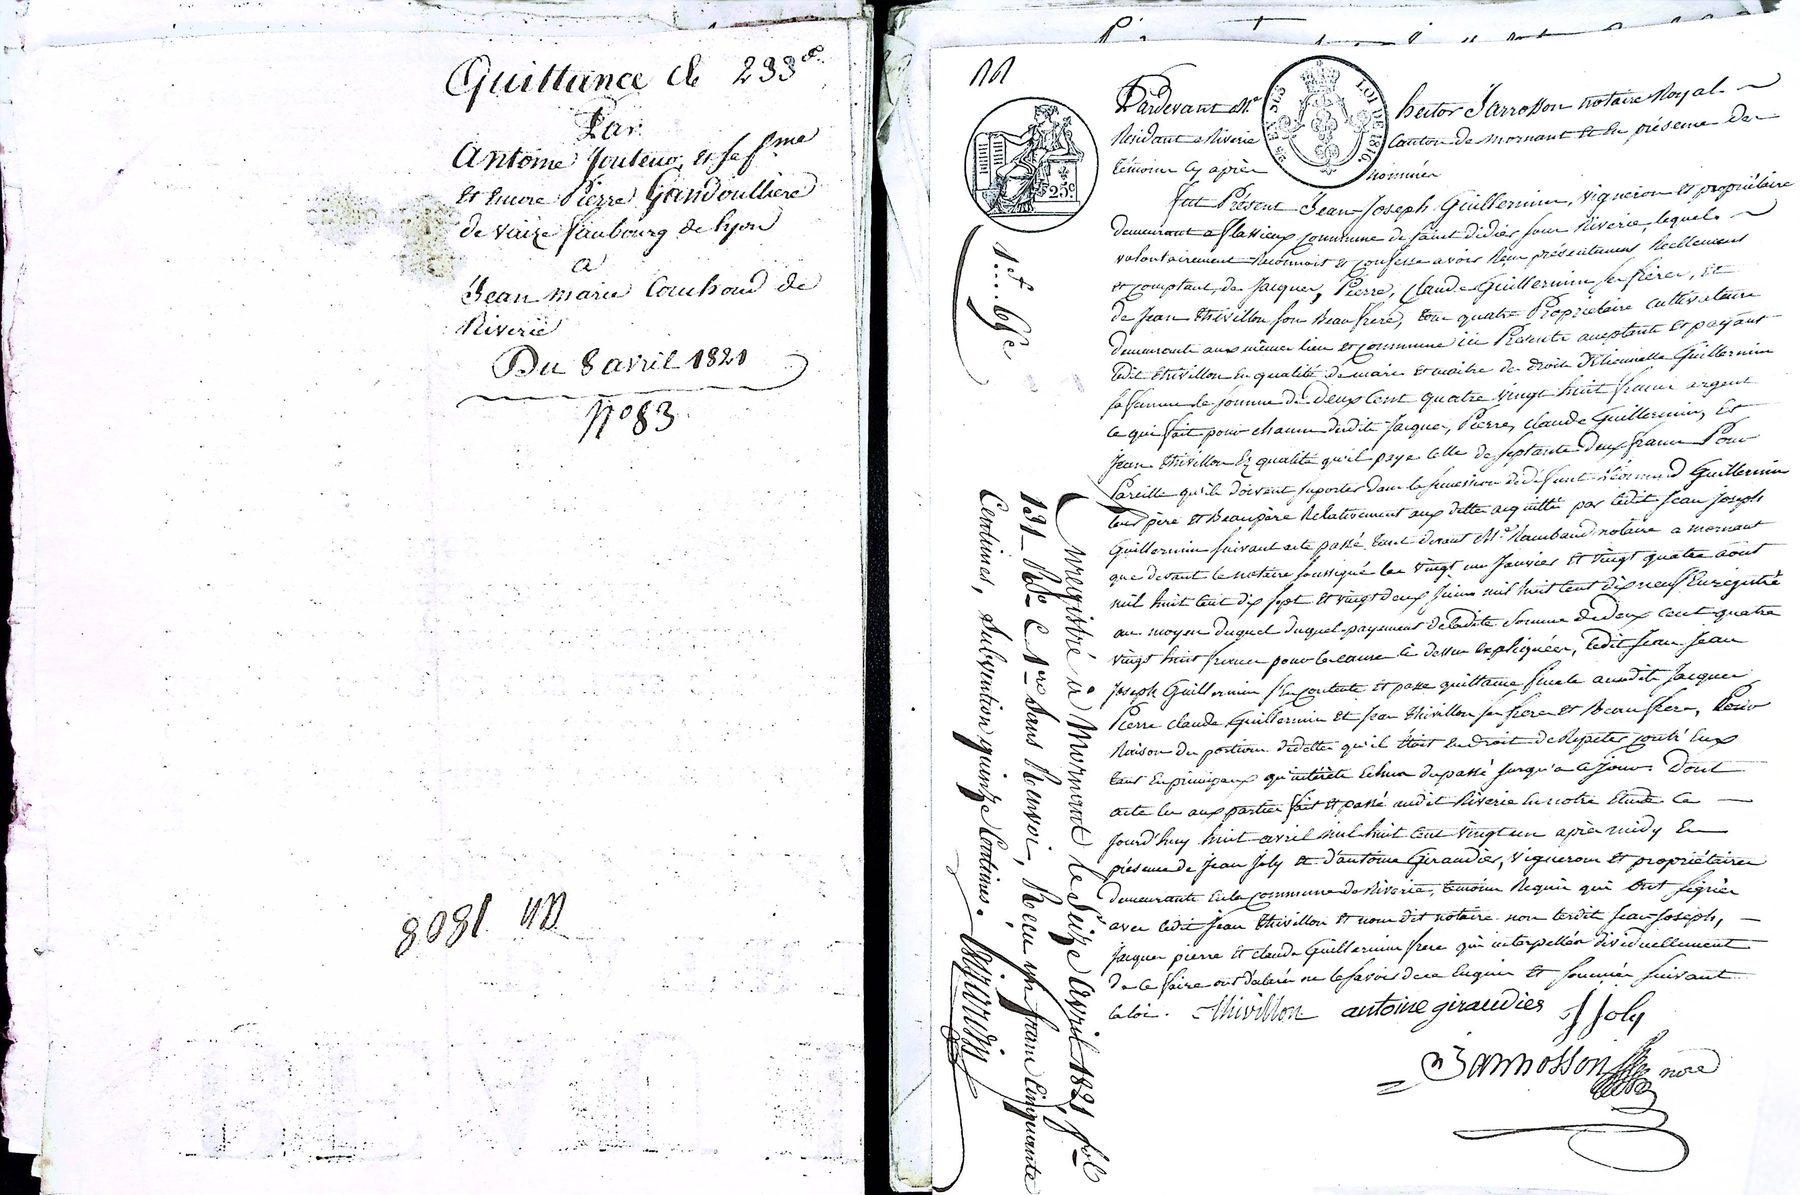 Quittance de 233 f.
Par
Antoine Jouteux et sa fme
et encore Pierre Gandoulliere
de vaize faubourg de Lyon
a
Jean marie Couchoud de
Riverie
Du 8 avril 1821
N° 83
an 1808
11
Pardevant Me hector Jarrosson notaire Royal
Résidant a Riverie Canton de mornant et en présence des
témoins cy après nommés
25 EN SUS LOI DE 1816
25c
fut Présent Jean-Joseph Guillermin, vigneron et propriétaire
demeurant a flassieux commune de saint didier sous Riverie, lequel
volontairement Reconnait et confesse avoir Reçu présentement Réellement
et comptant, de Jacques, Pierre, Claude Guillermin ses frères, et
de Jean thivillon son Beaufrere, tous quatre Propriétaire cultivateurs
demeurants aux mêmes lieu et commune ici Présents acceptants et payants
ledit thivillon en qualité de mari et maitre des droits d'Etiennette Guillermin
sa femme la somme de deux cent quatre vingt huit francs argent
ce qui fait pour chacun desdits Jacques, Pierre, Claude Guillermin, et
Jean thivillon En qualité qu'il paye celle de septante deux francs Pour
Pareille qu'ils doivent suporter dans la succession de défunt Guillermin
leur père et Beaupère Relativement aux dettes acquittés par ledit Jean Joseph
Guillermin suivant acte passé tant devant Me Raimbaud notaire a mornant
que devant le notaire soussigné les vingt un Janvier et vingt quatre août
mil huit cent dix sept et vingt deux Juin mil huit cent dix neuf Enregistré
au moyen duquel duquel payement de ladite somme de deux cent quatre
vingt huit francs pour les causes ci dessus expliquées, ledit Jean Jean
Joseph Guillermin s'en contente et passe quittance finale auxdits Jacques
Pierre Claude Guillermin et Jean thivillon ses freres et Beaufrere, Pour
Raison des portions dedettes qu'il étoit en droit de Repeter contr'Eux
tant En principaux qu'intérêts Echus du passé jusqu'a ce jour. Dont
acte lu aux parties fait et passé audit Riverie en notre Etude Ce
Jourd'huy huit avril mil huit cent vingt un après midy En
présence de Jean Joly et d'antoine Giraudier, vignerons et propriétaires
demeurants En la commune de Riverie, témoins Requis qui ont signés
avec ledit Jean thivillon et nous dit notaire non lesdit Jean Joseph,
Jacques pierre et claude Guillermin freres qui interpellés dividuellement
de ce faire ont déclarés ne le savoir dece Enquis et sommés suivant
la loi. thivillon antoine giraudier J Joly
Jarrosson nore
1 f .... 65 c
Enregistré à Mornant le Seize avril 1821 fol
131 Ro C 1re sans Renvoi, Reçu un franc Cinquante
Centimes, subvention quinze Centimes.